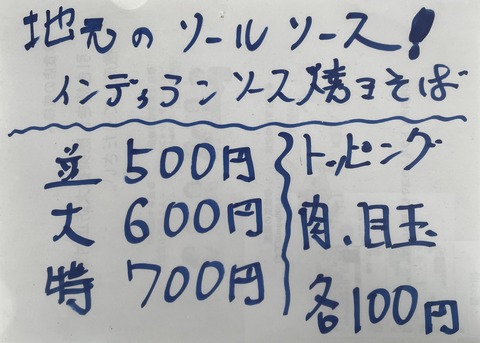 地元のソールソース!
インディアンソース焼きそば
並 500円
大 600円
特 700円
トッピング
肉、目玉
各100円